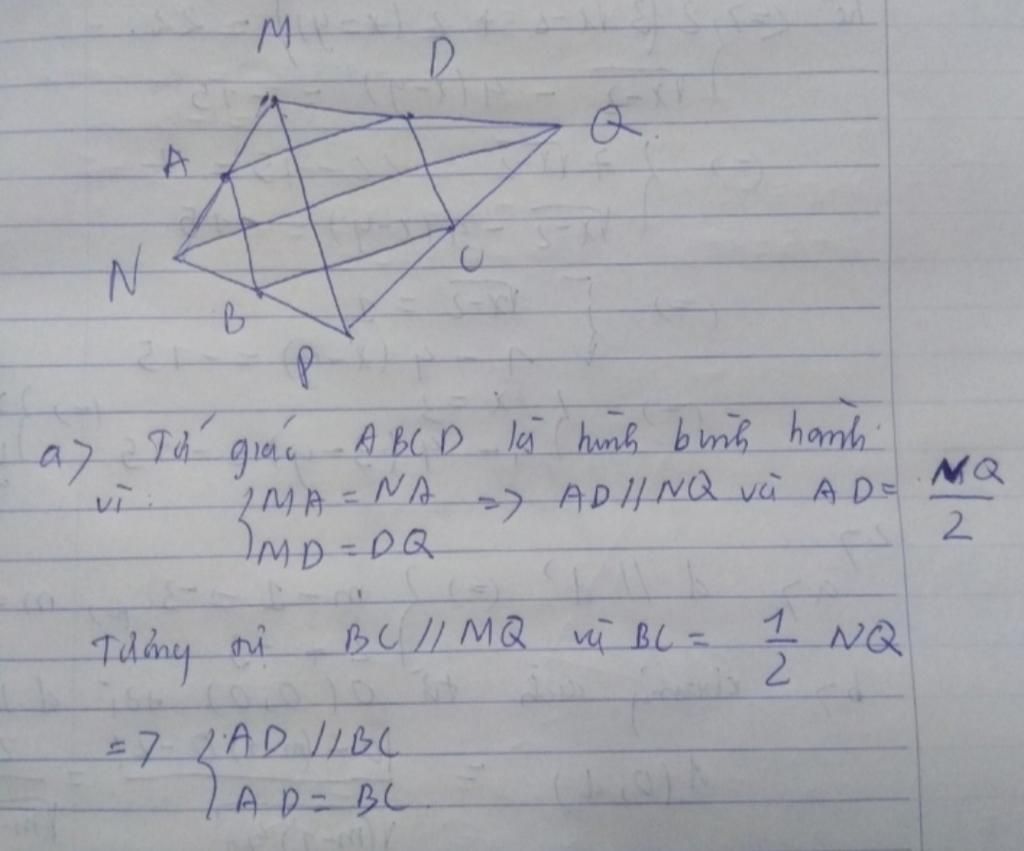 M
D
Q
A
N
C
B
P
a> Tứ giác ABCD là hình bình hành
vì: { MA = NA => AD // NQ và AD = NQ/2
MD = DQ
Tương tự BC // MQ và BC = 1/2 NQ
=> { AD // BC
AD = BC